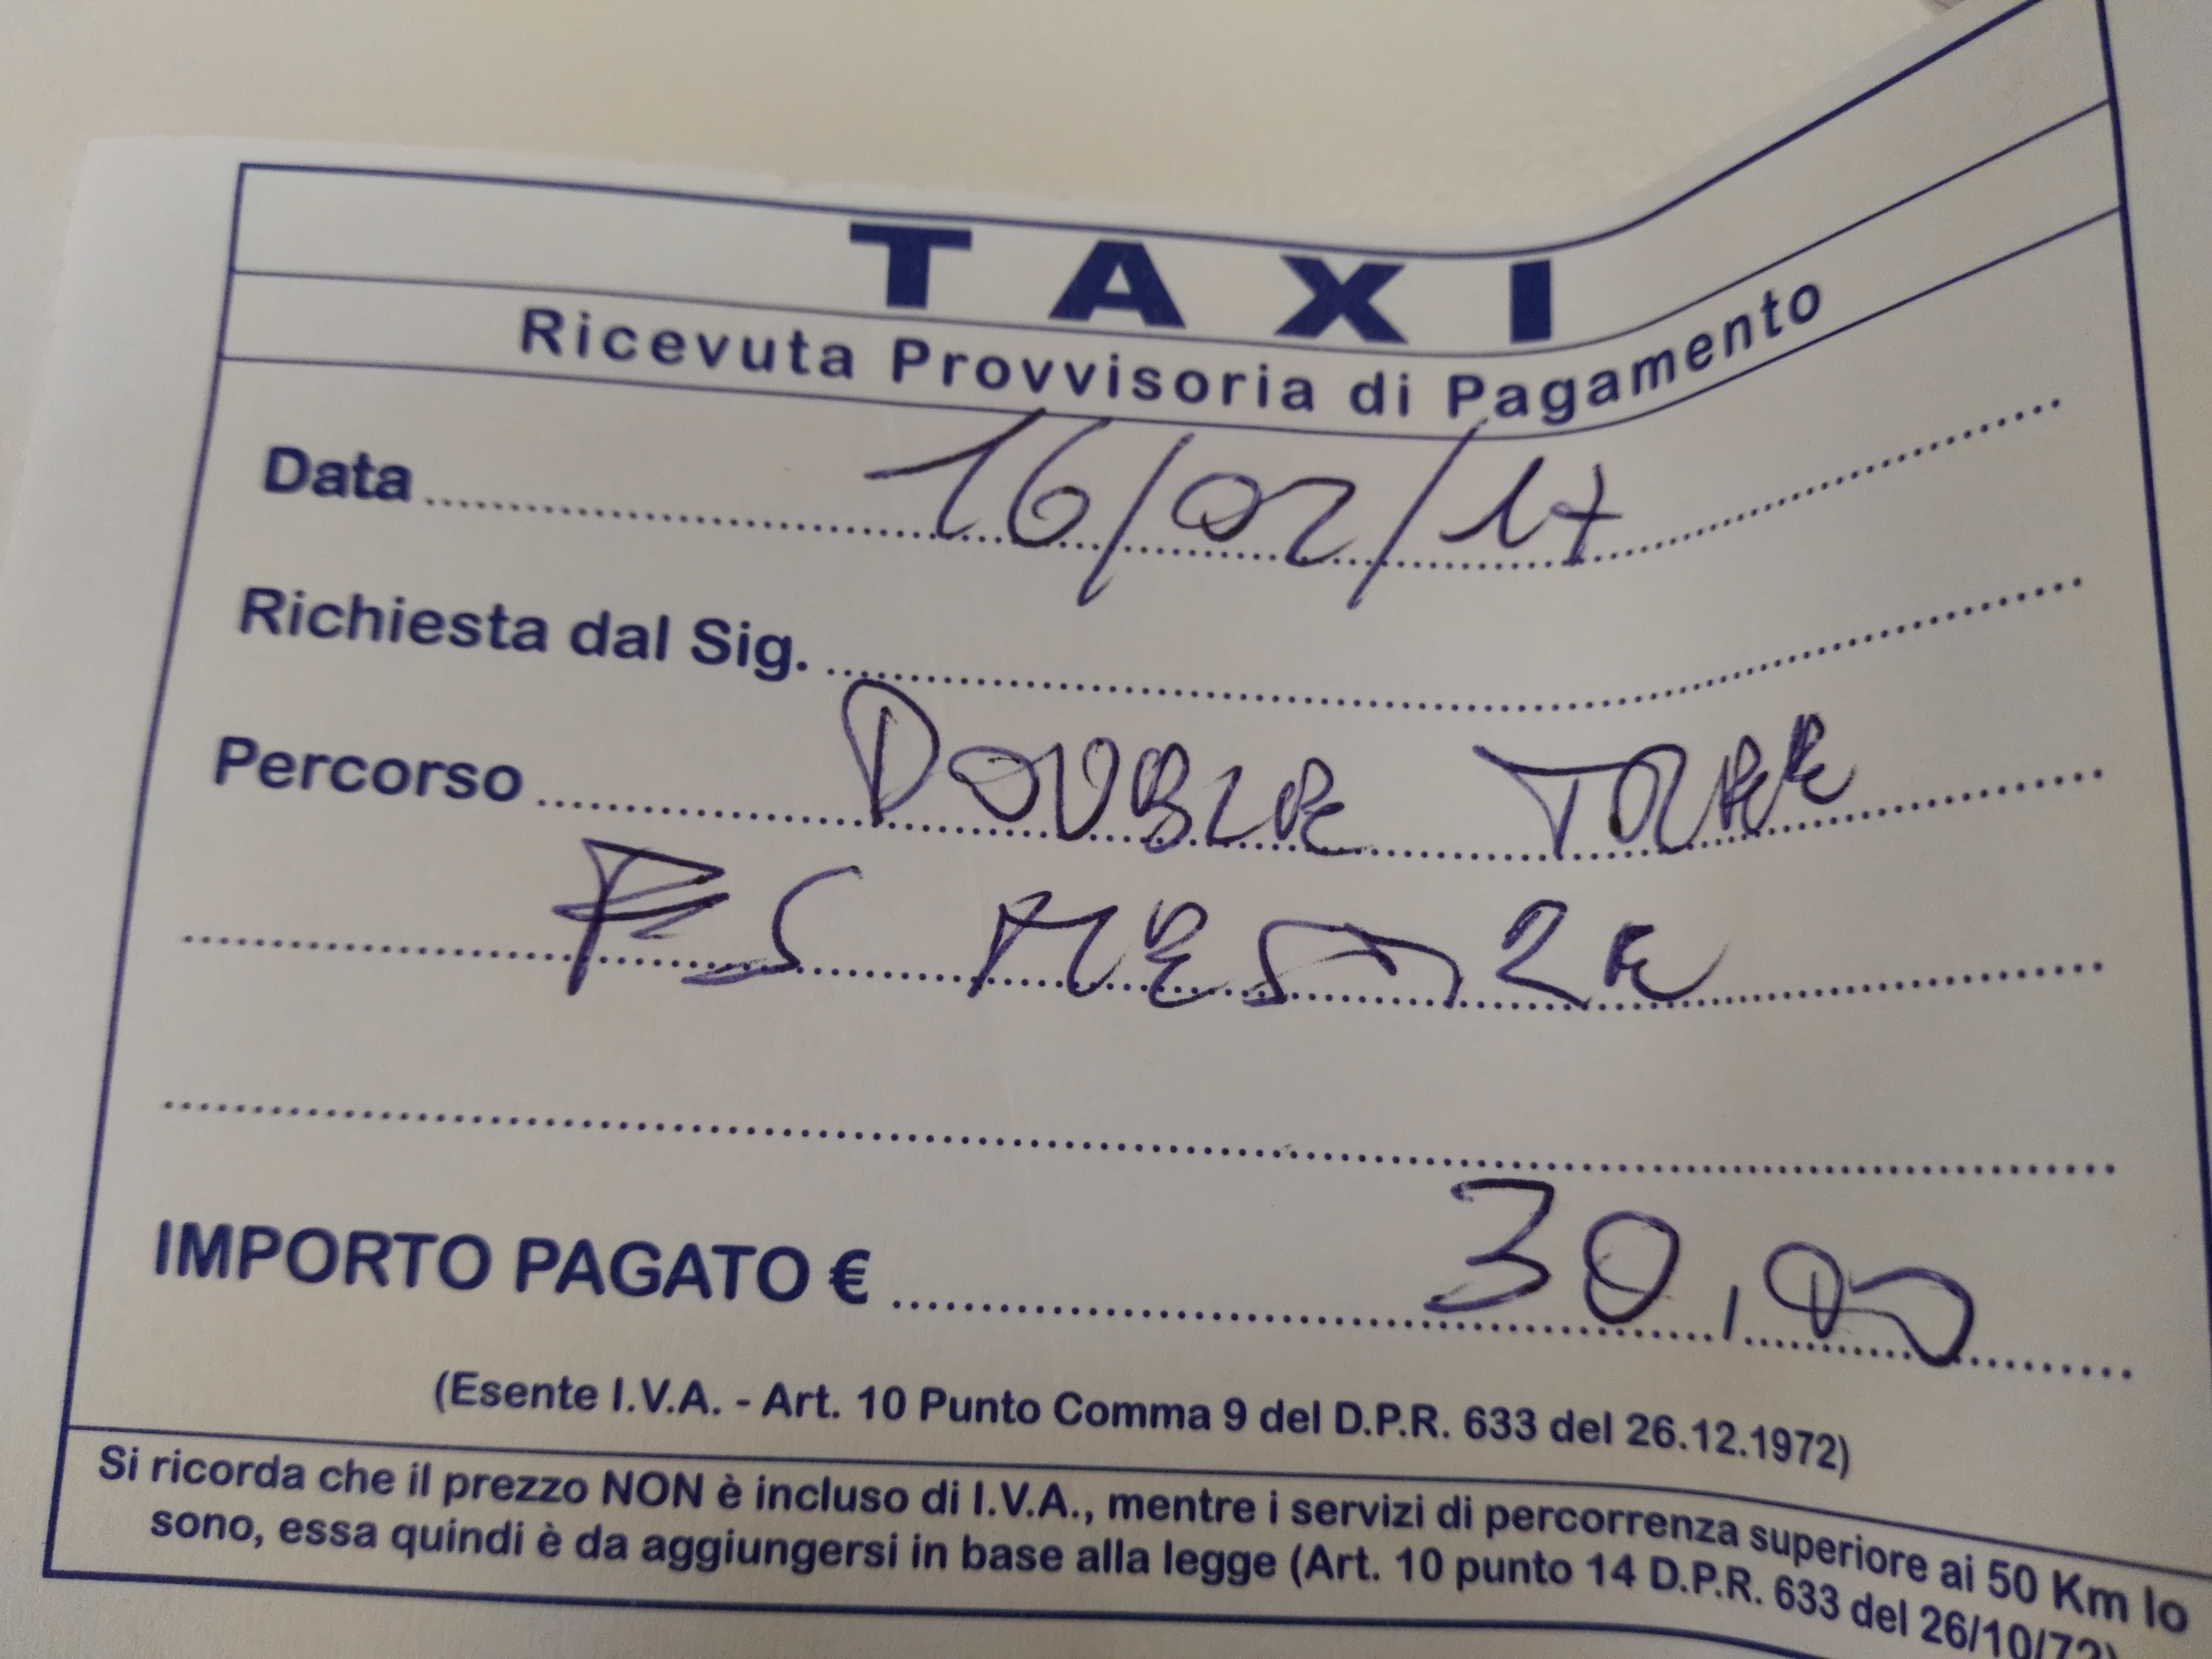 TAXI
Ricevuta Provvisoria di Pagamento
Data 16/02/17
Richiesta dal Sig.
Percorso DOUBLE TREE
FS MESTRE
IMPORTO PAGATO € 30,00
(Esente I.V.A. - Art. 10 Punto Comma 9 del D.P.R. 633 del 26.12.1972)
Si ricorda che il prezzo NON è incluso di I.V.A., mentre i servizi di percorrenza superiore ai 50 Km lo
sono, essa quindi è da aggiungersi in base alla legge (Art. 10 punto 14 D.P.R. 633 del 26/10/72)